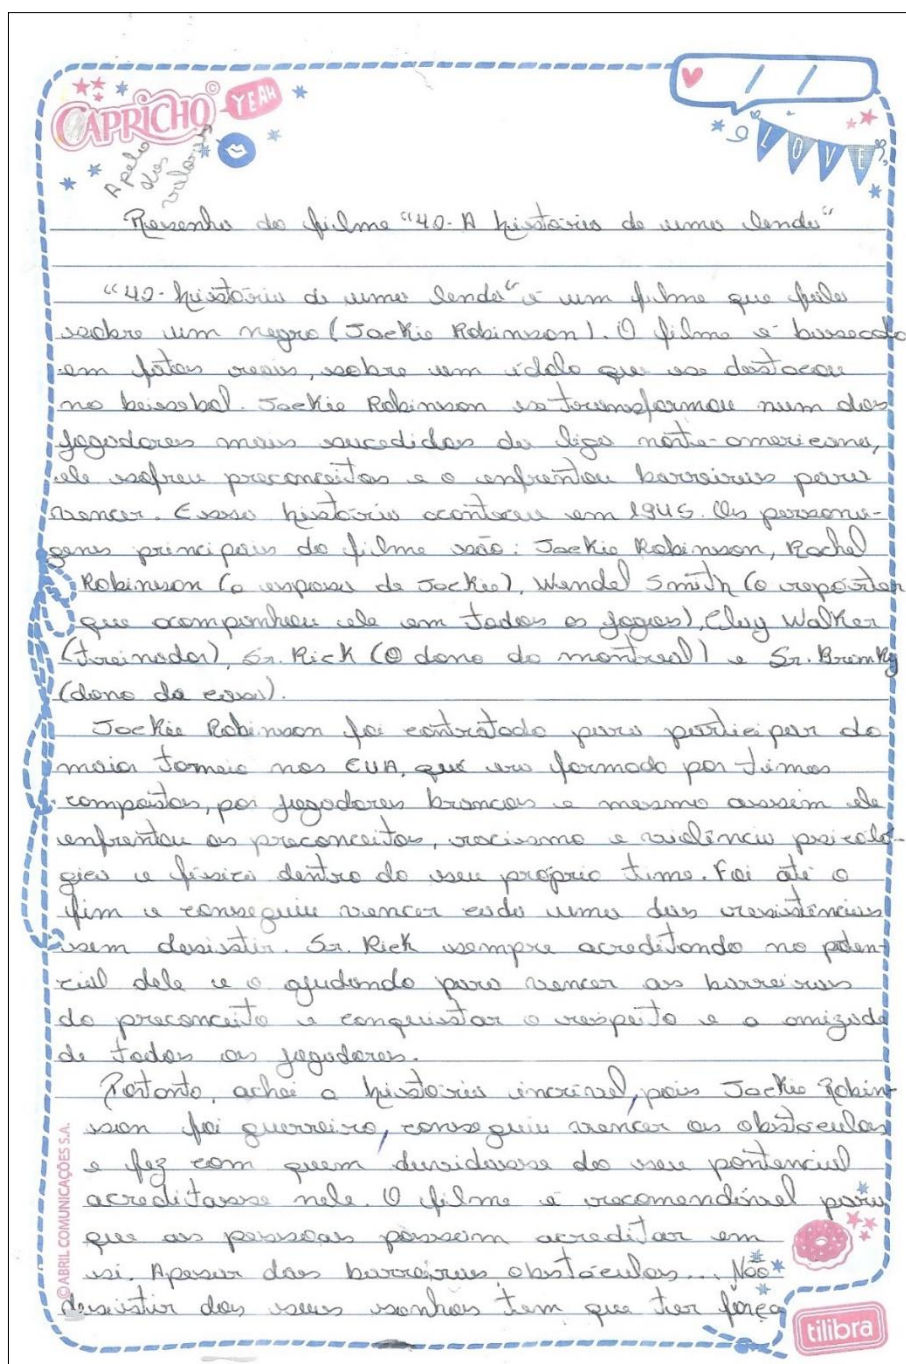 CAPRICHO©
YEAH
/ /
LOVE
Apelo
dos
valores
Resenha do filme "42- A história de uma lenda"
"42- história de uma lenda" é um filme que fala
sobre um negro (Jackie Robinson). O filme é baseado
em fatos reais, sobre um ídolo que se destacou
no beisebol. Jackie Robinson se transformou num dos
jogadores mais sucedidos da liga norte-americana,
ele sofreu preconceitos e o enfrentou barreiras para
vencer. Essa história aconteceu em 1945. Os persona-
gens principais do filme são: Jackie Robinson, Rachel
Robinson (a esposa de Jackie), Wendel Smith (o repórter
que acompanhou ele em todos os jogos), Clay Walker
(treinador), Sr. Rick (O dono do montreal) e Sr. Brimky
(dono da casa).
Jackie Robinson foi contratado para participar do
maior torneio nos EUA, que era formado por times
compostos, por jogadores brancos e mesmo assim ele
enfrentou os preconceitos, racismo e violência psicoló-
gica e física dentro do seu próprio time. Foi até o
fim e conseguiu vencer cada uma das resistências
sem desistir. Sr. Rick sempre acreditando no poten-
cial dele e o ajudando para vencer as barreiras
do preconceito e conquistar o respeito e a amizade
de todos os jogadores.
Portanto, achei a história incrível, pois Jackie Robin-
son foi guerreiro, conseguiu vencer os obstáculos
e fez com quem duvidasse do seu pontencial
acreditasse nele. O filme é recomendável para
que as pessoas possam acreditar em
si. Apesar das barreiras, obstáculos... Não
desistir dos seus sonhos tem que ter força
©ABRIL COMUNICAÇÕES S.A.
tilibra